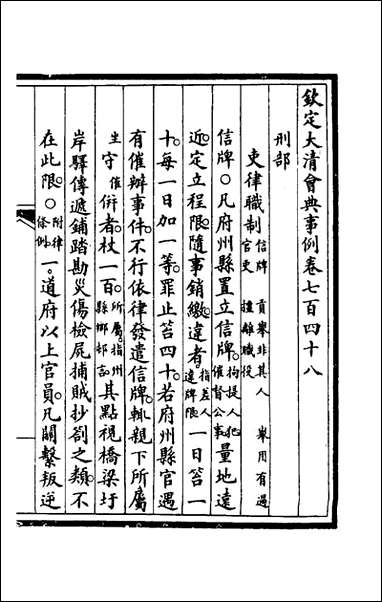 欽定大清會典事例卷七百四十八
刑部
吏律職制信牌 貢舉非其人 舉用有過官吏 擅離職役
信牌○凡府州縣置立信牌拘提人犯催督公事量地遠
近定立程限隨事銷繳違者指差人違牌限一日笞一
十每一日加一等罪止笞四十若府州縣官遇
有催辦事件不行依律發遣信牌輒親下所屬
坐守催併者杖一百所屬指州縣鄉邨言其點視橋梁圩
岸驛傳遞鋪踏勘災傷檢屍捕賊抄劄之類不
在此限○附律條例一道府以上官員凡關繫叛逆